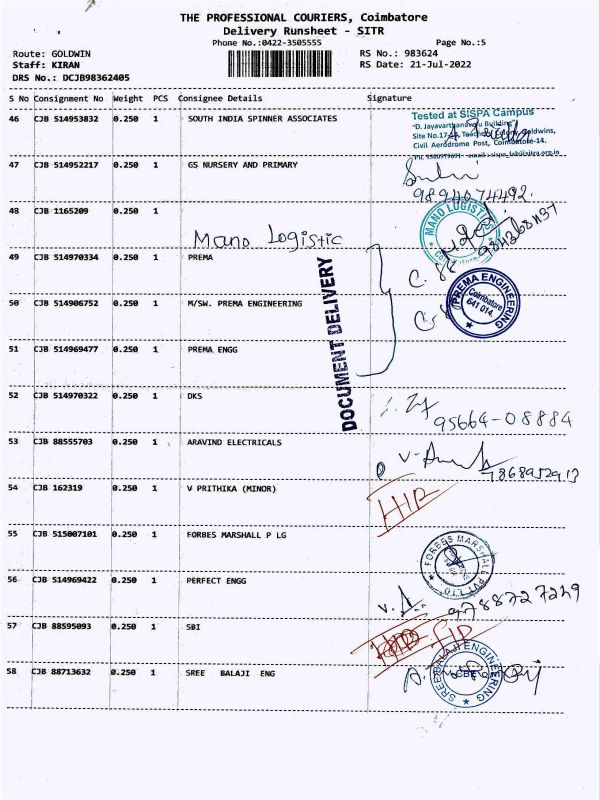 THE PROFESSIONAL COURIERS, Coimbatore
Delivery Runsheet - SITR
Phone No.:0422-3505555 Page No.:5
Route: GOLDWIN RS No.: 983624
Staff: KIRAN RS Date: 21-Jul-2022
DRS No.: DCJB98362405
S No Consignment No Weight PCS Consignee Details Signature
46 CJB 514953832 0.250 1 SOUTH INDIA SPINNER ASSOCIATES
Tested at SISPA Campus
"D. Jayavarthanavelu Building"
Civil Aerodrome Post, Coimbatore-14.
47 CJB 514952217 0.250 1 GS NURSERY AND PRIMARY
9894074492.
48 CJB 1165209 0.250 1
Mano Logistic
MANO LOGISTIC
49 CJB 514970334 0.250 1 PREMA
50 CJB 514906752 0.250 1 M/SW. PREMA ENGINEERING
PREMA ENGINEERING
Coimbatore
641 014.
DOCUMENT DELIVERY
51 CJB 514969477 0.250 1 PREMA ENGG
52 CJB 514970322 0.250 1 DKS
95664-08884
53 CJB 88555703 0.250 1 ARAVIND ELECTRICALS
54 CJB 162319 0.250 1 V PRITHIKA (MINOR)
55 CJB 515007101 0.250 1 FORBES MARSHALL P LG
FORBES MARSHALL PVT LTD
56 CJB 514969422 0.250 1 PERFECT ENGG
9788727249
57 CJB 88595093 0.250 1 SBI
58 CJB 88713632 0.250 1 SREE BALAJI ENG
SREE BALAJI ENGINEERING
CBE